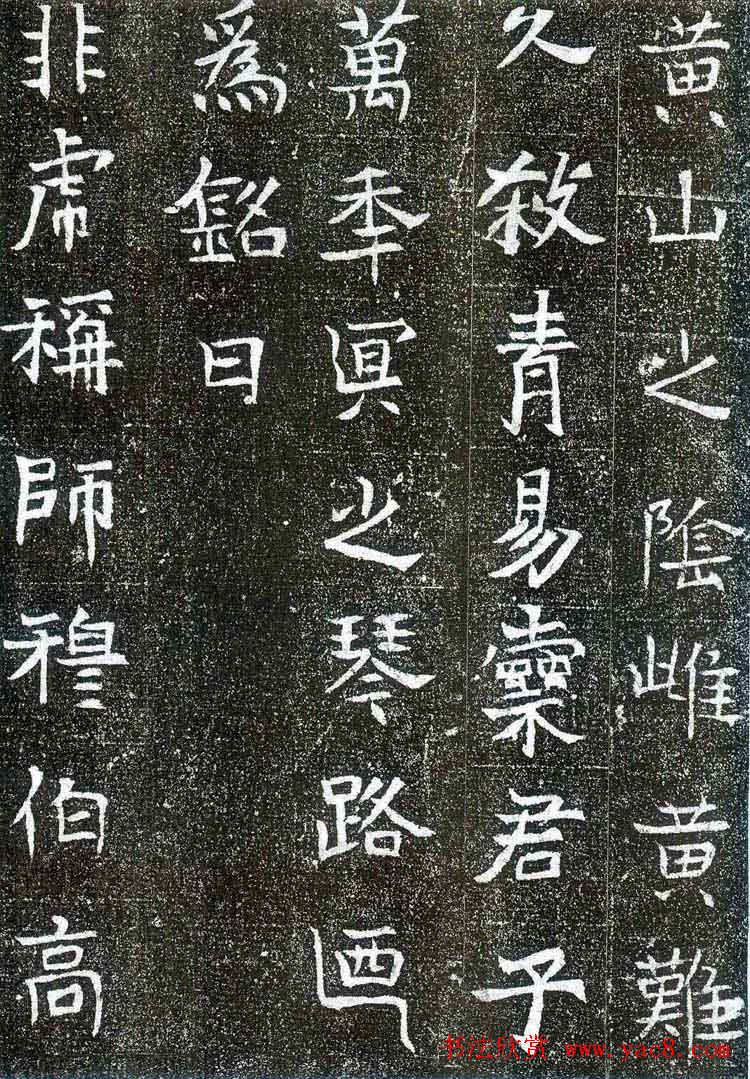 黄山之陰雌黄難
久殺青易蠹君子
萬秊冥之琴路迺
爲銘曰
非虎稱師穆伯高
书法欣赏 www.yac8.com